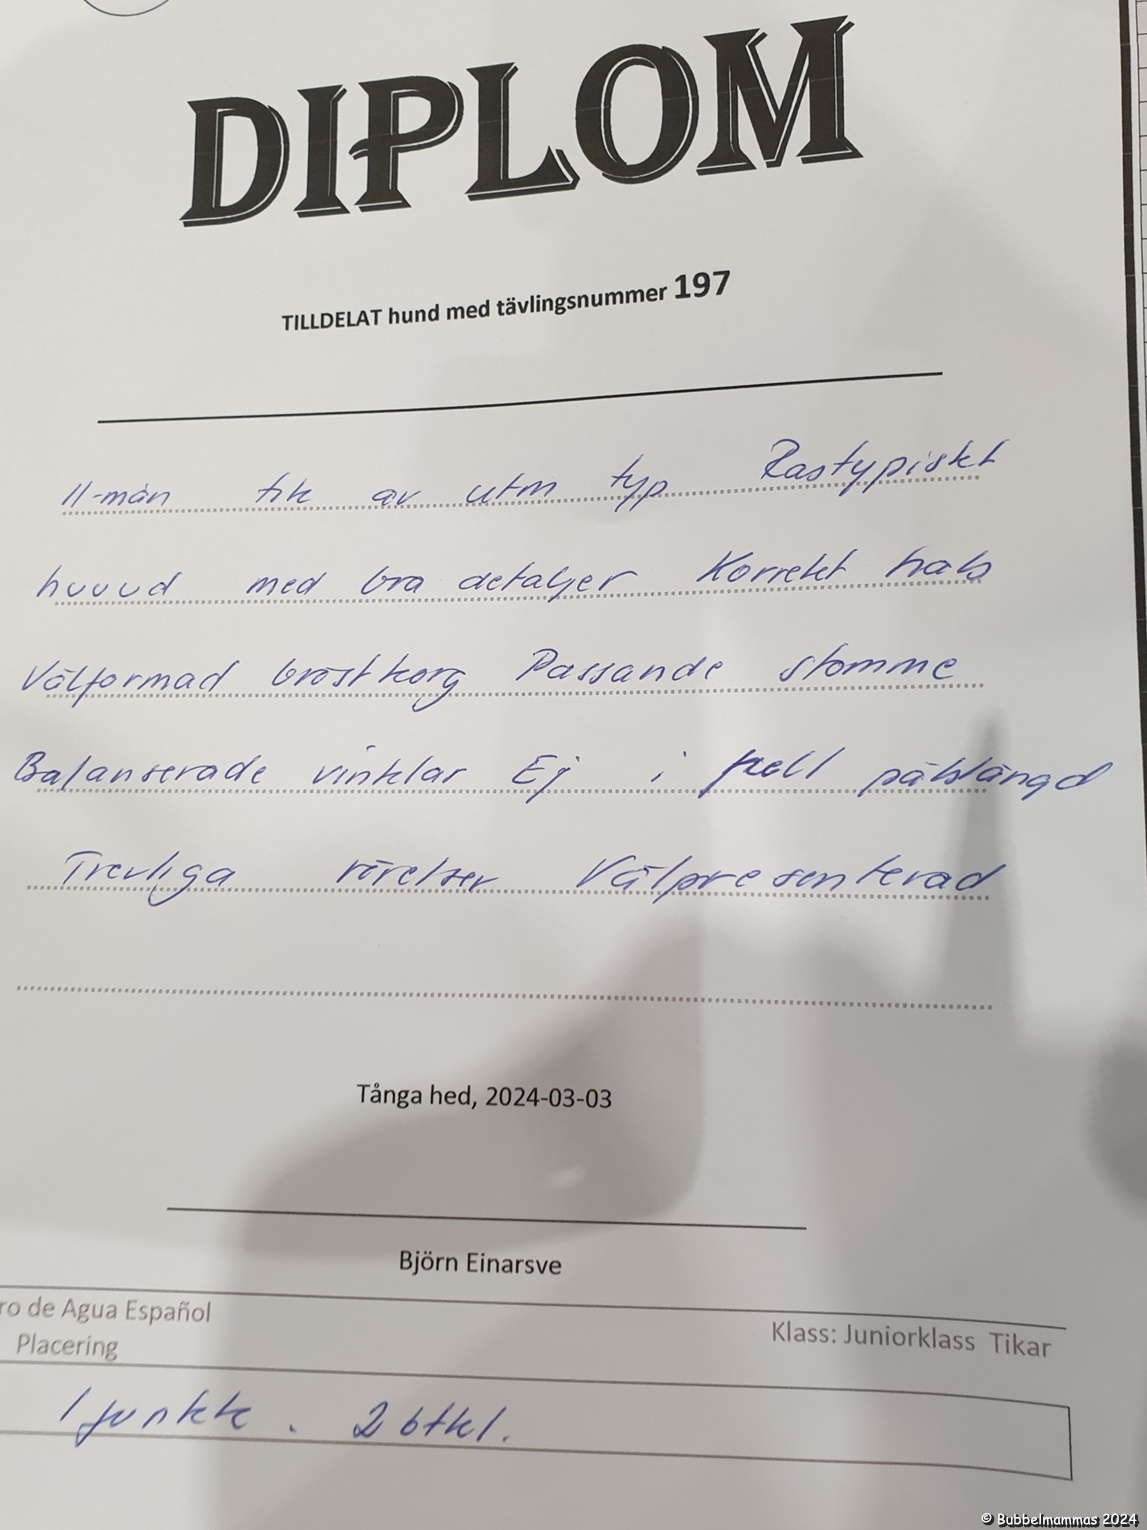 DIPLOM
TILLDELAT hund med tävlingsnummer 197
11-mån tik av utm typ Rastypiskt
huvud med bra detaljer Korrekt hals
Välformad bröstkorg Passande stomme
Balanserade vinklar Ej i päll pälslängd
Trevliga rörelser Välpresenterad
Tånga hed, 2024-03-03
Björn Einarsve
ro de Agua Español
Klass: Juniorklass Tikar
Placering
1 junkk . 2 btkl.
© Bubbelmammas 2024